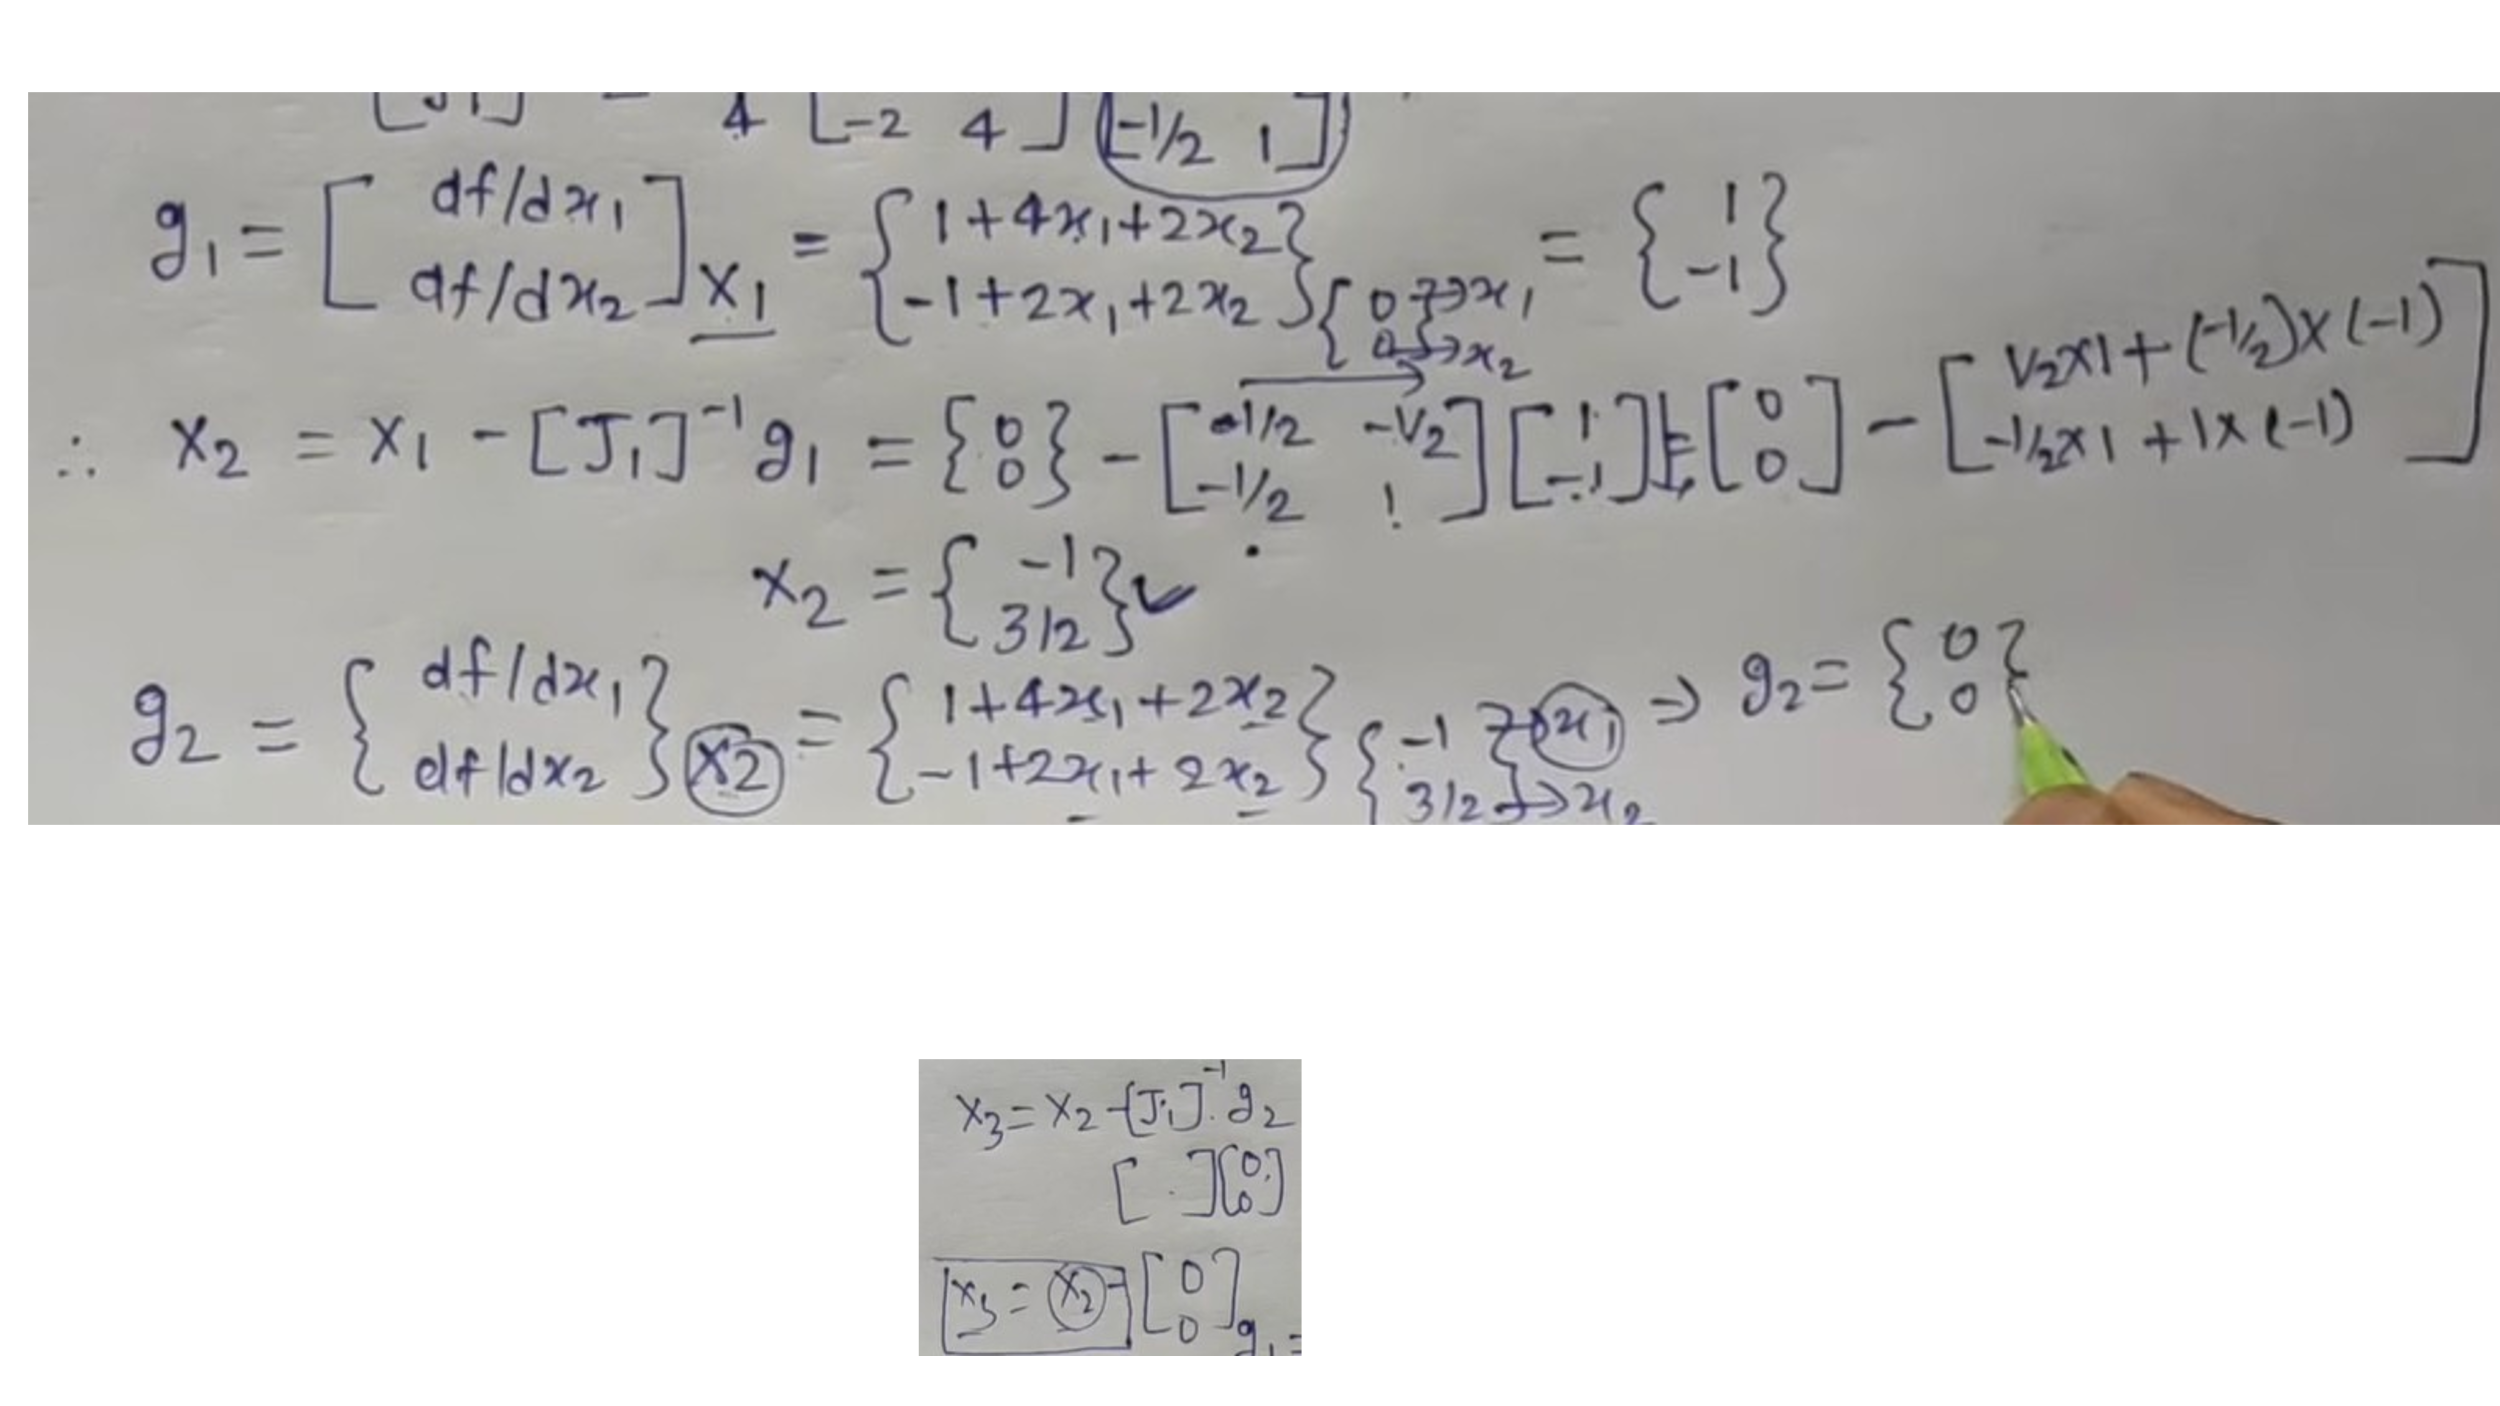 [J1] = 4 [-2 4] [-1/2 1]
g1 = [df/dx1 df/dx2]X1 = {1+4x1+2x2 -1+2x1+2x2}{0→x1 0→x2} = {1 -1}
∴ X2 = X1 - [J1]⁻¹ g1 = {0 0} - [1/2 -1/2 -1/2 1][1 -1] = [0 0] - [1/2x1+(-1/2)x(-1) -1/2x1+1x(-1)]
X2 = {-1 3/2}✓
g2 = {df/dx1 df/dx2}X2 = {1+4x1+2x2 -1+2x1+2x2}{-1→x1 3/2→x2} ⇒ g2 = {0 0}
X3 = X2 - [J1]⁻¹. g2
[ . ][0 0]
X3 = X2 - [0 0]
g1 =